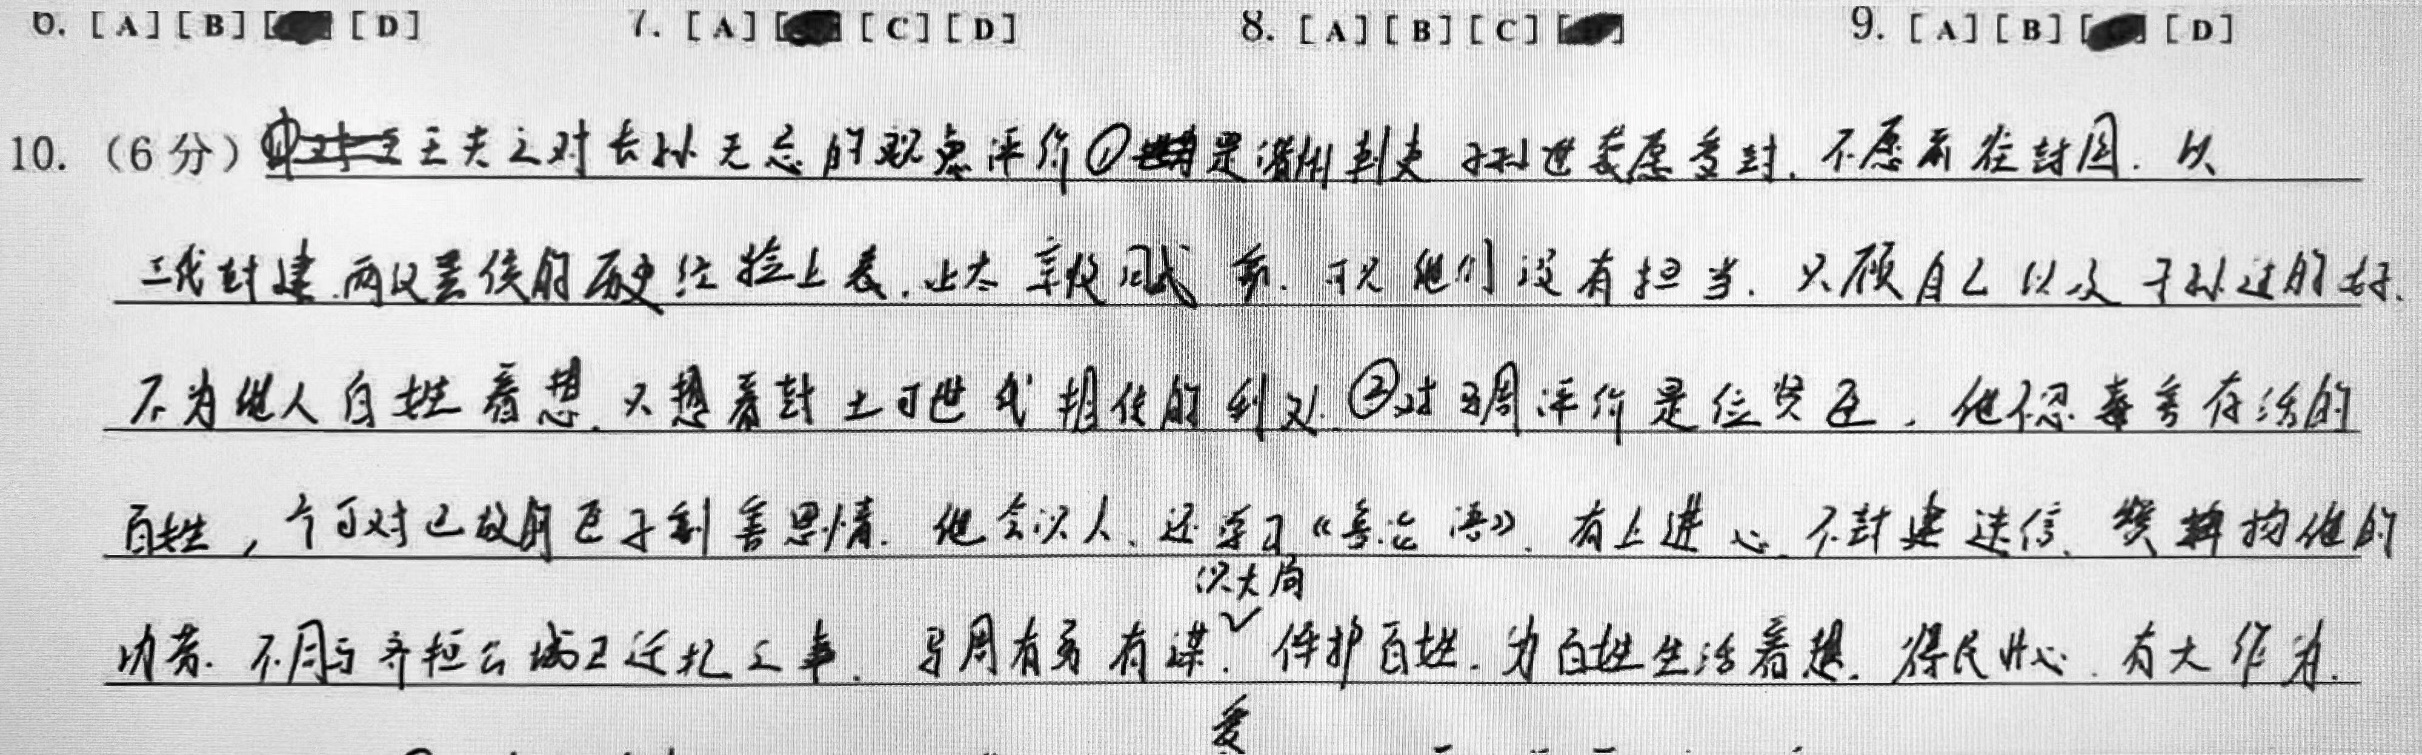 6. [A] [B] [ ] [D] 7. [A] [ ] [C] [D] 8. [A] [B] [C] [ ] 9. [A] [B] [ ] [D]
10. (6分) 王夫之对长孙无忌的观点评价①是 刺史 子孙世袭愿受封,不愿前往封国.以
三代封建.两汉置侯的历史经验上表,让太宗收回.可见他们没有担当.只顾自己以及子孙过的好.
不为他人百姓着想.只想着封土可世代相传的利处.②对马周评价是位贤臣,他不忍毒害存活的
百姓,宁可对已故的臣子割害恩情.他会识人.还学习《论语》.有上进心.不封建迷信.
识大局
功劳.不同与齐桓公 之事.马周有勇有谋.保护百姓.为百姓生活着想.得民心.有大作为.
爱